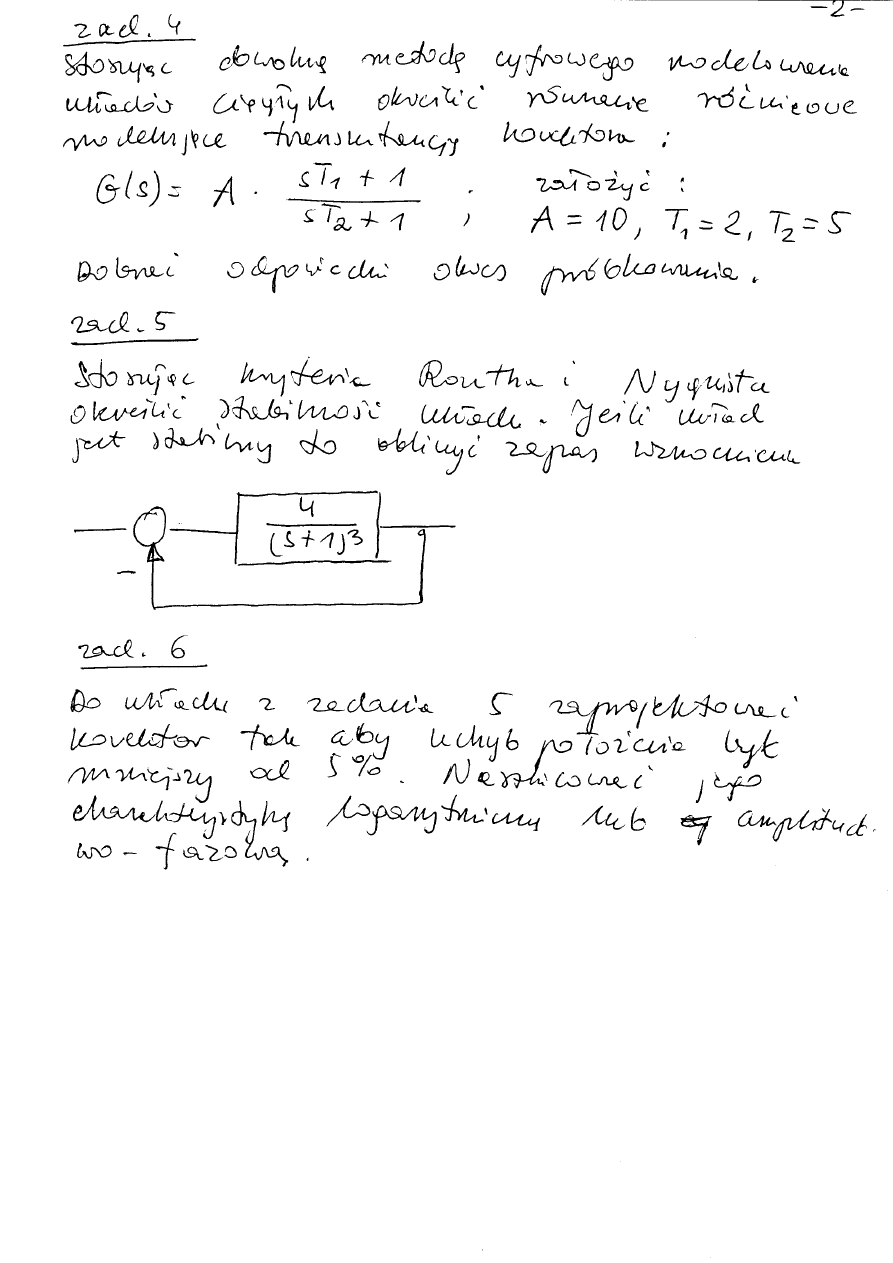 -2-
zad. 4
Stosując dowolną metodę cyfrowego modelowania
układów ciągłych określić równanie różnicowe
modelujące transmitancję korektora :
G(s) = A · \frac{sT_1 + 1}{sT_2 + 1} , założyć : A = 10, T_1 = 2, T_2 = 5
Dobrać odpowiedni okres próbkowania.
zad. 5
Stosując kryteria Routha i Nyquista
określić stabilność układu. Jeśli układ
jest stabilny to obliczyć zapas wzmocnienia
\frac{4}{(s+1)^3}
-
zad. 6
Do układu z zadania 5 zaprojektować
korektor tak aby uchyb położenia był
mniejszy od 5%. Naszkicować jego
charakterystykę logarytmiczną lub amplitud.
wo - fazową.